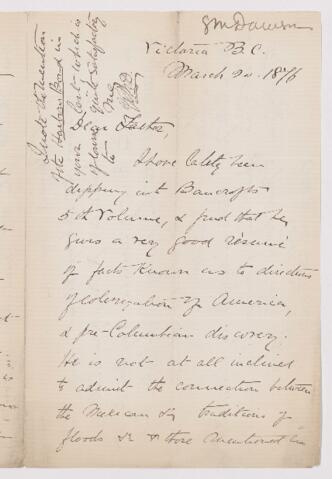 GM Dawson
Victoria B.C.
March 24. 1876
Dear Father,
I have lately been
dipping into Bancrofts
5th Volume, & find that he
gives a very good résumé
of facts known as to directions
of colonization of America,
& pre-Columbian discovery.
He is not at all inclined
to admit the connection between
the Mexican & traditions of
floods & & those mentioned in
I note the mention
of the Harbour Board in
your last which is
of course quite satisfactory
to me
GMD